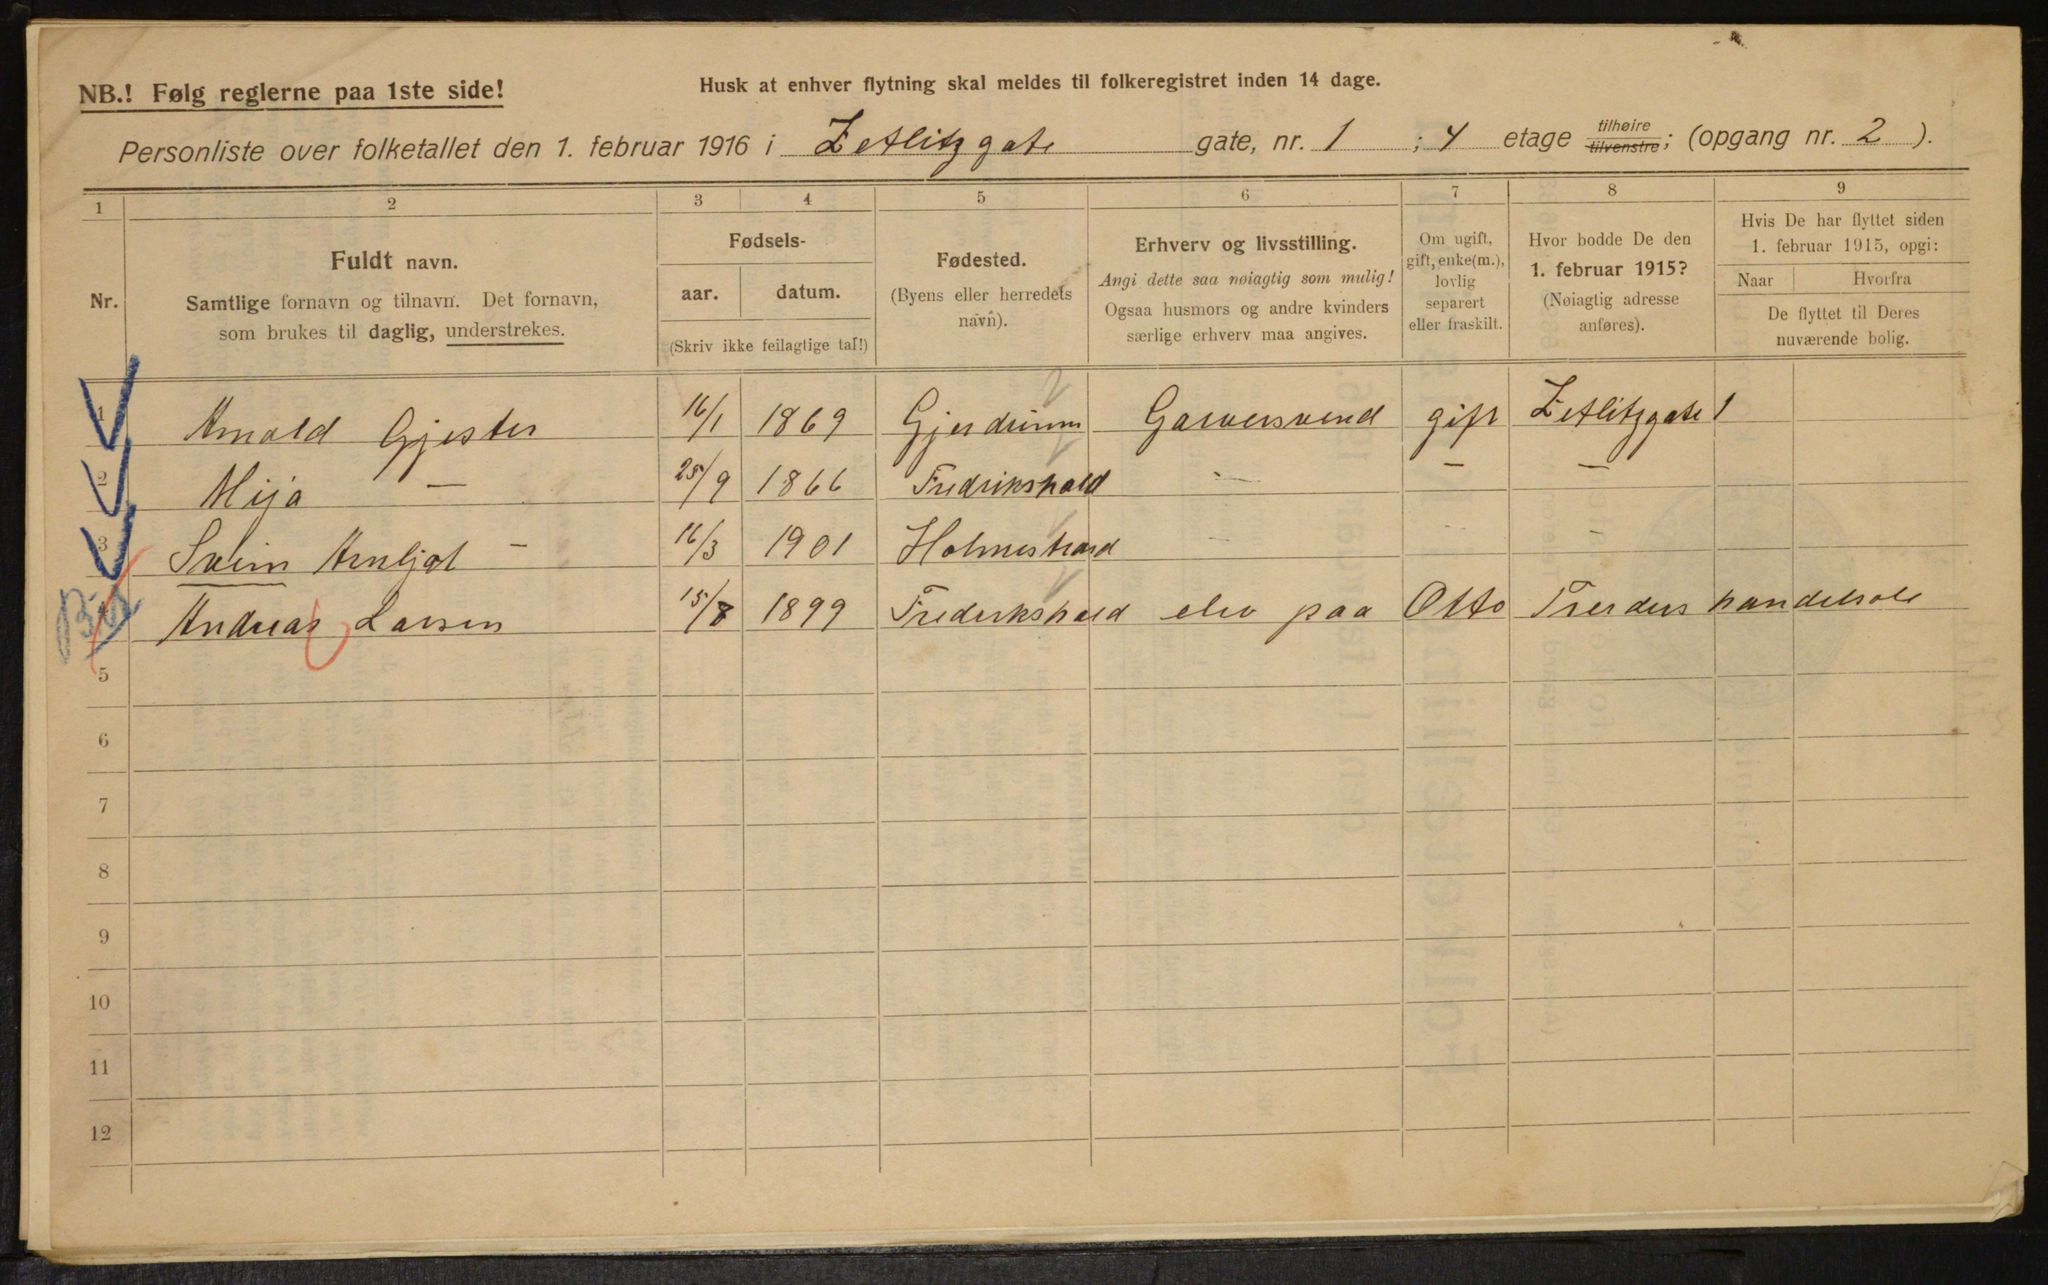 NB.! Følg reglerne paa 1ste side!
Husk at enhver flytning skal meldes til folkeregistret inden 14 dage.
Personliste over folketallet den 1. februar 1916 i Zetlitzgate gate, nr. 1 ; 4 etage tilhøire tilvenstre; (opgang nr. 2 ).
1 2 3 4 5 6 7 8 9
Nr.
Fuldt navn.
Samtlige fornavn og tilnavn. Det fornavn,
som brukes til daglig, understrekes.
Fødsels-
aar. datum.
(Skriv ikke feilagtige tal!)
Fødested.
(Byens eller herredets
navn).
Erhverv og livsstilling.
Angi dette saa nøiagtig som mulig!
Ogsaa husmors og andre kvinders
særlige erhverv maa angives.
Om ugift,
gift, enke(m.),
lovlig
separert
eller fraskilt.
Hvor bodde De den
1. februar 1915?
(Nøiagtig adresse
anføres).
Hvis De har flyttet siden
1. februar 1915, opgi:
Naar Hvorfra
De flyttet til Deres
nuværende bolig.
1 Arnold Gjester 16/1 1869 Gjerdrum Garversvend gift Zetlitzgate 1
2 Mija — 25/9 1866 Fredrikshald — — —
3 Svein Arnljot — 16/3 1901 Holmestrand — — —
4 Andreas Larsen 15/8 1899 Frederkshald elev paa Otto Treiders handelsole
5
6
7
8
9
10
11
12